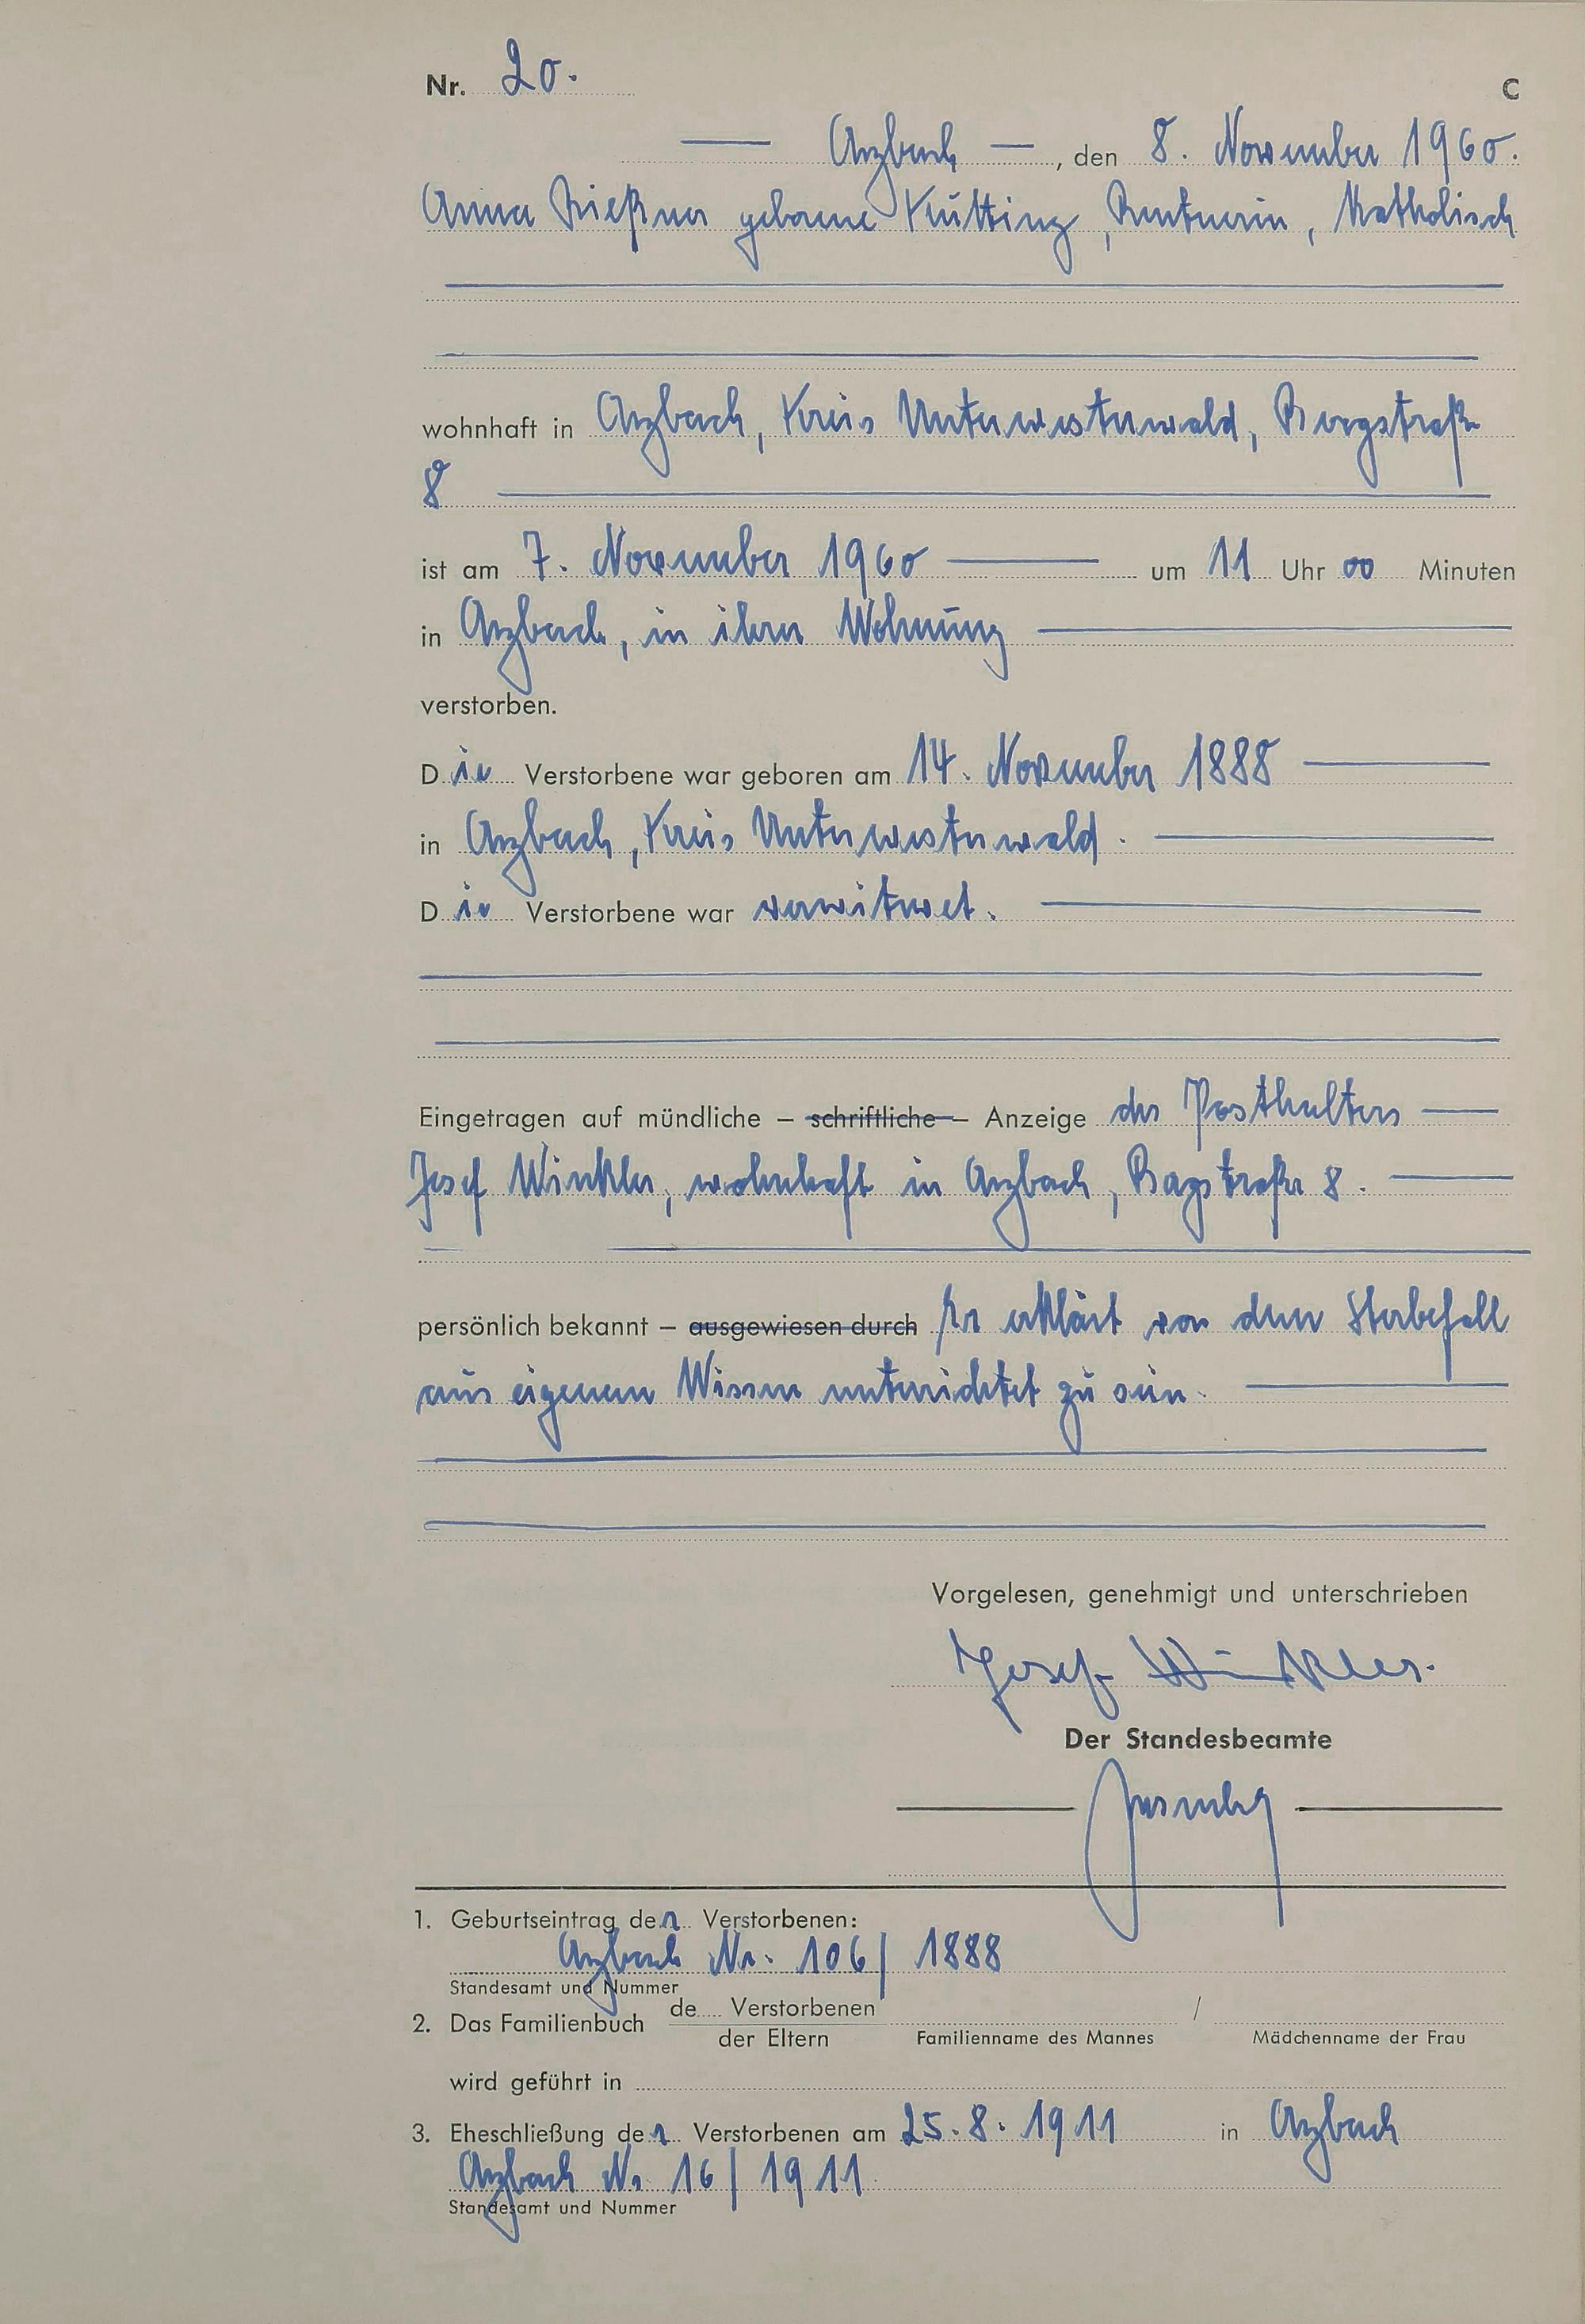 Nr. 20. C
— Arzbach —, den 8. November 1960.
Anna geborene Rentnerin, Katholisch
wohnhaft in Arzbach, Kreis Unterwesterwald, Burgstraße
8
ist am 7. November 1960 — um 11 Uhr 00 Minuten
in Arzbach, in ihrer Wohnung
verstorben.
Die Verstorbene war geboren am 14. November 1888
in Arzbach, Kreis Unterwesterwald.
Die Verstorbene war verwitwet.
Eingetragen auf mündliche – schriftliche – Anzeige des Posthalters
Josef Winkler, wohnhaft in Arzbach, Burgstraße 8.
persönlich bekannt – ausgewiesen durch Er erklärt von dem Sterbefall
aus eigenem Wissen unterrichtet zu sein.
Vorgelesen, genehmigt und unterschrieben
Josef Winkler.
Der Standesbeamte
1. Geburtseintrag der Verstorbenen:
Arzbach Nr. 106/1888
Standesamt und Nummer
2. Das Familienbuch de.... Verstorbenen /
der Eltern Familienname des Mannes Mädchenname der Frau
wird geführt in
3. Eheschließung der Verstorbenen am 25.8.1911 in Arzbach
Arzbach Nr. 16/1911
Standesamt und Nummer